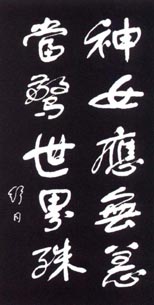 神女應無恙
當驚世界殊